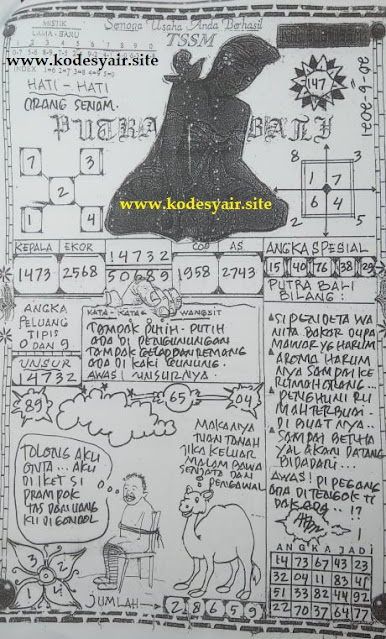 Semoga Usaha Anda Berhasil
MISTIK
LAMA - BARU
TSSM
www.kodesyair.site
HATI - HATI
ORANG SENAM.
PUTRA BALI
147
7 3
2
1 4
8 3
1 7
6 4
2 5
www.kodesyair.site
KEPALA EKOR
14732
COP AS
50689
1473 2568
1958 2743
ANGKA SPESIAL
15 40 76 38 29
ANGKA
PELUANG
TIPIS
0 DAN 9
UNSUR
14732
KATA - KATA WANGSIT
TAMPAK PUTIH - PUTIH
ADA DI PEGUNUNGAN
TAMPAK GELAP DAN REMANG
ADA DI KAKI GUNUNG.
AWAS! UNSURNYA.
PUTRA BALI
BILANG:
SI PENDETA WA
NITA BAKOR DUPA
MAWAR YG HARUM
AROMA HARUM
NYA SAMPAI KE
RUMAH ORANG...
PENGHUNI RU
MAH TERBUAI
DI BUAT NYA..
SAMPAI BERHA
YAL AKAN DATANG
BIDADARI...
AWAS! DI PEGANG
ADA DI TENGOK TI
DAK ADA...!?
89
65
04
TOLONG AKU
ONTA... AKU
DI IKET SI
PRAMPOK
TAS DAN UANG
KU DI GONDOL
MAKANYA
TUAN TANAH
JIKA KELUAR
MALAM BAWA
SENJATA DAN
PENGAWAL
3 2
1 4
JUMLAH
28659
ANGKA JADI
14 73 67 43 23
32 04 11 83 46
51 33 82 44 92
22 70 37 64 77